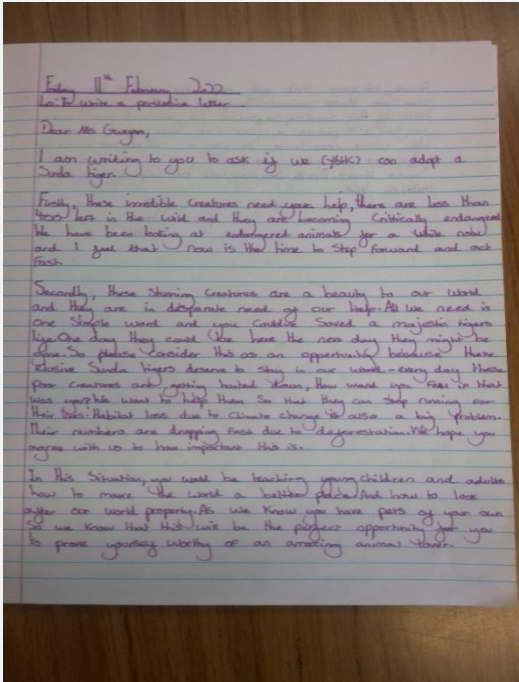 Friday 11th February 2022
Lo: To write a persuasive letter
Dear Ms
I am writing to you to ask if we (Y6HC) can adopt a
Sunda tiger.
Firstly, these incredible creatures need your help, there are less than
400 left in the wild and they are becoming Critically endangered
We have been looking at endangered animals for a while now
and I feel that now is the time to step forward and act
fast.
Secondly, these stunning creatures are a beauty to our world
and they are in desperate need of our help. All we need is
one simple word and you could've saved a majestic tigers
live. One day they could be here the nex day they might be
gone. So please consider this as an opportunity because these
elusive Sunda tigers deserve to stay in our world - every day these
poor creatures are getting hunted down, How would you feel if that
was you? We want to help them so that they can stop running for
their lives. Habitat loss due to climate change is also a big problem.
Their numbers are dropping fast due to deforestation. We hope you
agree with us to how important this is.
In this situation, you would be teaching young children and adults
how to make the world a better place. And how to look
after our world property. As we know you have pets of your own
so we know that this will be the perfect opportunity for you
to prove yourself worthy of an amazing animal lover.